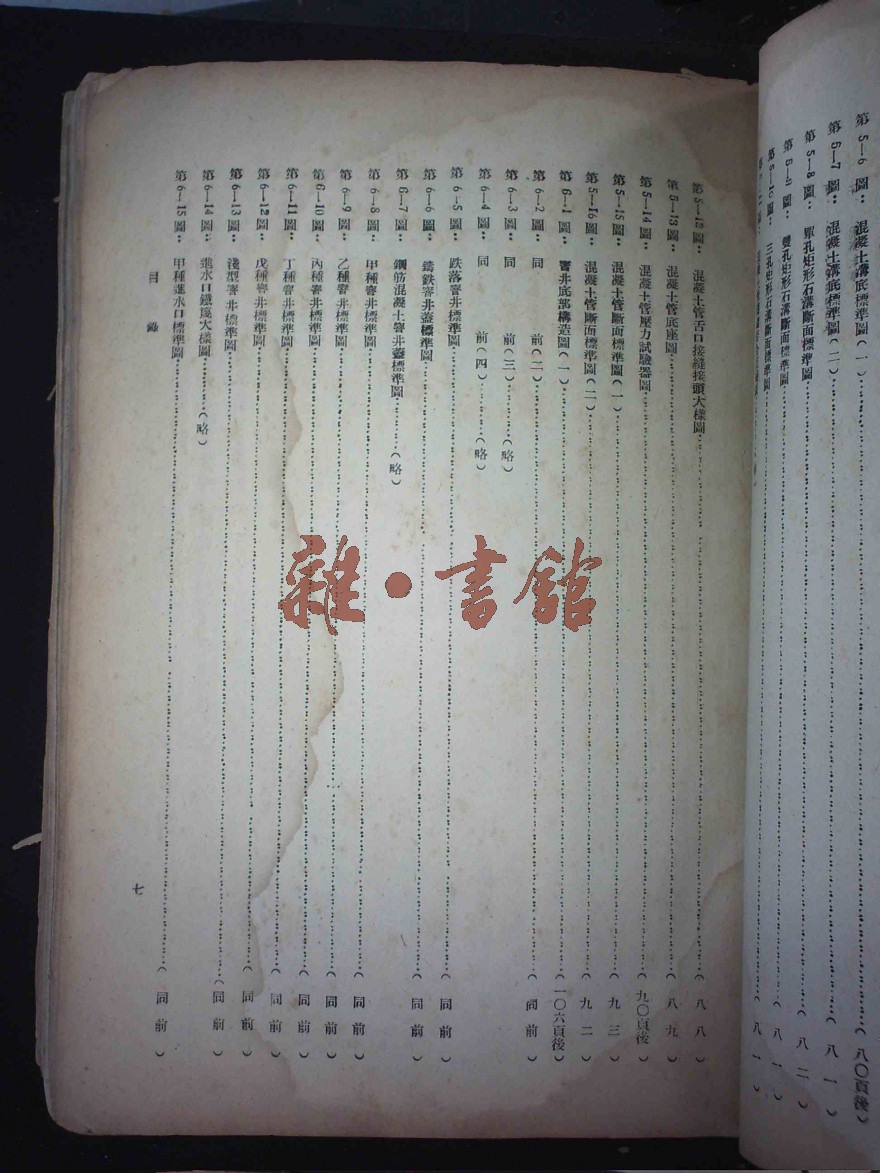 第5—6圖：混凝土溝底標準圖(一)……(八〇頁後)
第5—7圖：混凝土溝底標準圖(二)……(八一)
第5—8圖：單孔矩形石溝斷面標準圖……(八二)
第5—9圖：雙孔矩形石溝斷面標準圖……(八一)
第5—10圖：三孔矩形石溝斷面標準圖……(八一)
第5—12圖：混凝土管舌口接縫接頭大樣圖……(八八)
第5—13圖：混凝土管底座圖……(八九)
第5—14圖：混凝土管壓力試驗器圖……(九〇頁後)
第5—15圖：混凝土管斷面標準圖(一)……(九三)
第5—16圖：混凝土管斷面標準圖(二)……(九二)
第6—1圖：窨井底部構造圖(一)……(一〇六頁後)
第6—2圖：同前(二)……(同前)
第6—3圖：同前(三)……(略)
第6—4圖：同前(四)……(略)
第6—5圖：跌落窨井標準圖……(同前)
第6—6圖：鑄鉄窨井蓋標準圖……(同前)
第6—7圖：鋼筋混凝土窨井蓋標準圖……(略)
第6—8圖：甲種窨井標準圖……(同前)
第6—9圖：乙種窨井標準圖……(同前)
第6—10圖：丙種窨井標準圖……(同前)
第6—11圖：丁種窨井標準圖……(同前)
第6—12圖：戊種窨井標準圖……(同前)
第6—13圖：淺型窨井標準圖……(同前)
第6—14圖：進水口鐵篦大樣圖……(略)
第6—15圖：甲種進水口標準圖……(同前)
目錄
七
雜·書館